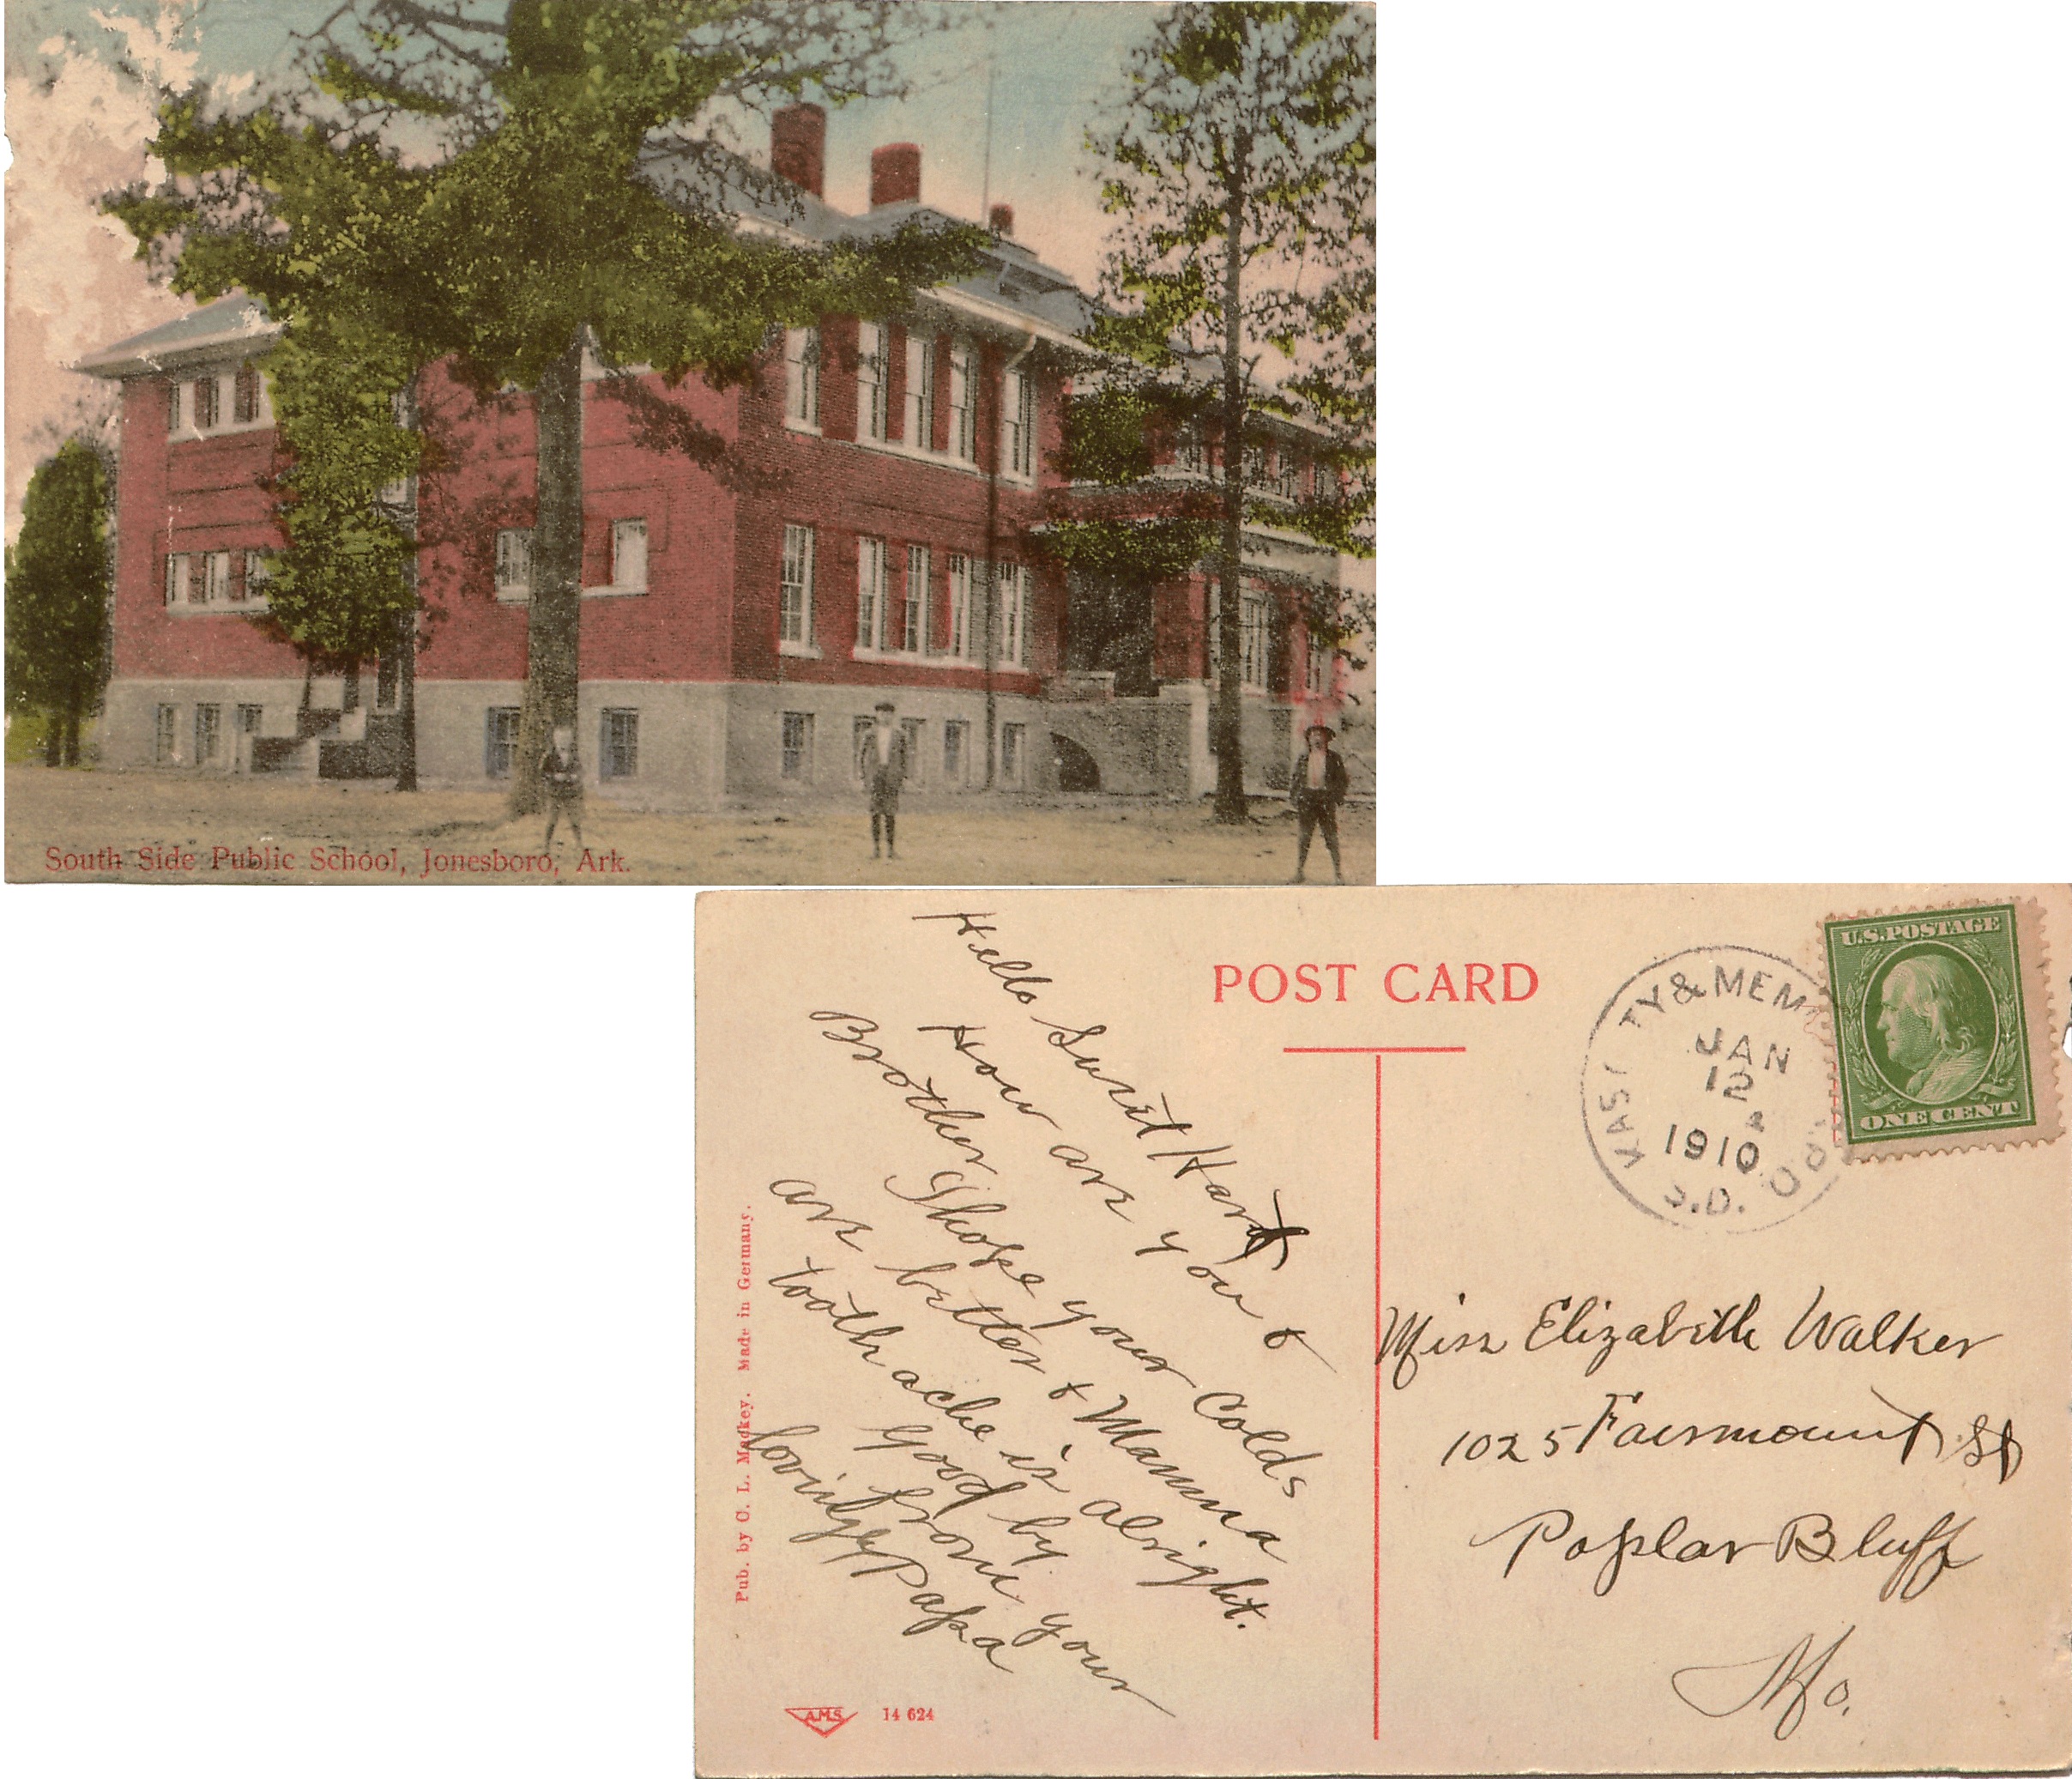 South Side Public School, Jonesboro, Ark.
POST CARD
U.S. POSTAGE
ONE CENT
TY & MEM
JAN
12
1910
Hello Sweet Hart
How are you &
Brother I hope your Colds
are better & Mamma
tooth ache is alright.
Good by
from your
lovingly Papa
Miss Elizabeth Walker
1025 Fairmount St
Poplar Bluff
Mo.
Pub. by O. L. Madkey. Made in Germany.
A.M.S. 14 624